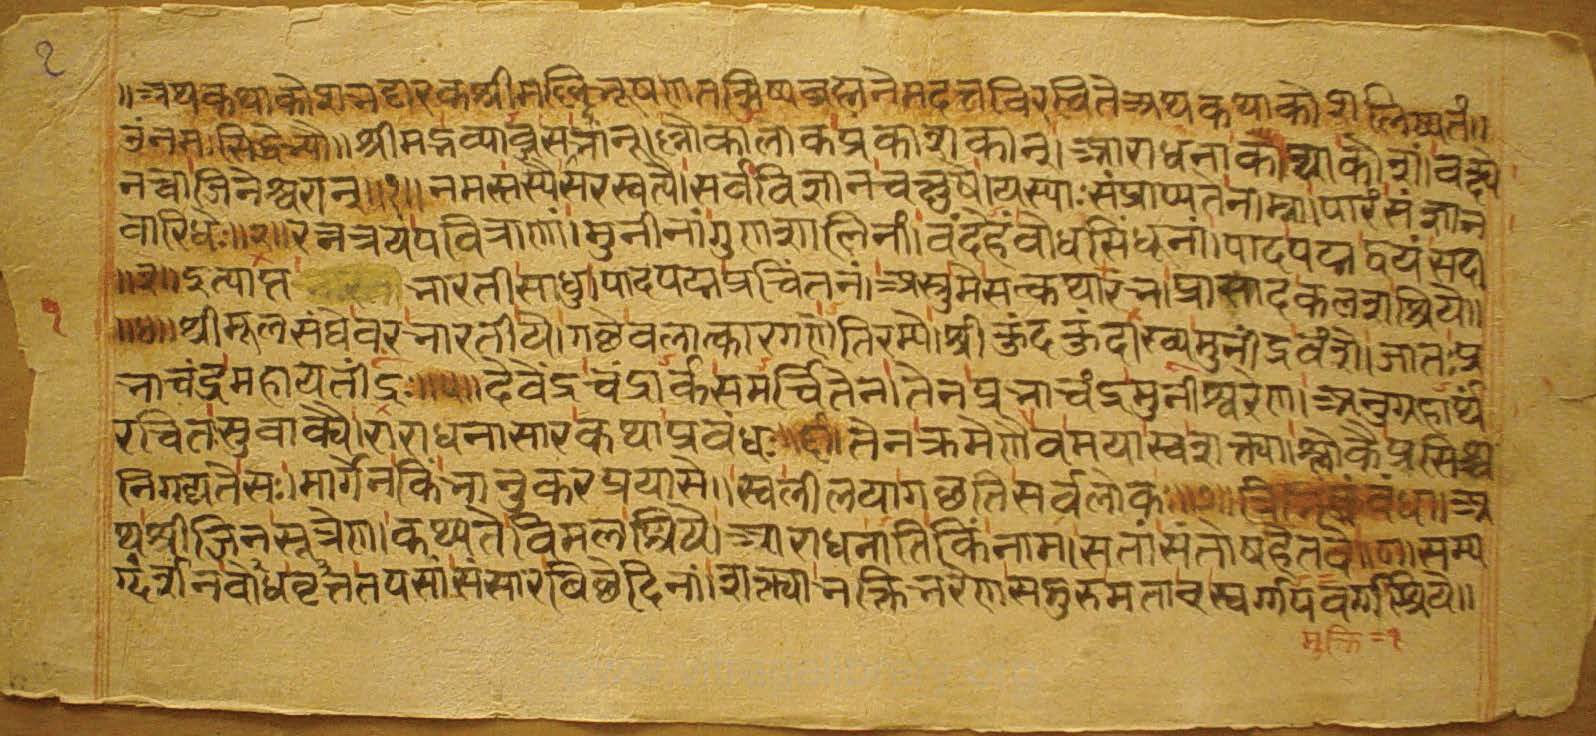 १
॥अथकथाकोशभट्टारकश्रीमल्लिभूषणतच्छिष्यब्रह्मनेमदत्तविरचितेअथकथाकोशलिख्यते॥
ॐनमःसिद्धेभ्यो॥श्रीमद्भव्याब्जसद्भानून्।लोकालोकप्रकाशकान्।आराधनाकथाकोशं।वक्ष्ये
नत्वाजिनेश्वरान्॥१॥नमस्तस्यैसरस्वत्यै।सर्वविज्ञानचक्षुषे।यस्याःसंप्राप्यतेनाम्ना।पारंसंज्ञान
वारिधेः॥२॥रत्नत्रयपवित्राणां।मुनीनांगुणशालिनां।वंदेहंबोधसिंधूनां।पादपद्मद्वयंसदा
॥३॥इत्याप्त भारतीसाधु।पादपद्मप्रचिंतनं।अस्तुमेसत्कथारंभ।प्रासादकलशश्रिये॥
१
॥४॥श्रीमूलसंघेवरभारतीये।गछेबलात्कारगणेतिरम्ये।श्रीकुंदकुंदाख्यमुनींद्रवंशे।जातःप्र
भाचंद्रमहायतींद्रः॥५॥देवेंद्रचंद्रार्कसमर्चितेन।तेनप्रभाचंद्रमुनीश्वरेण।अनुग्रहार्थं
रचितःसुवाक्यै।राराधनासारकथाप्रबंधः॥६॥तेनक्रमेणैवमयास्वशक्त्या।श्लोकैप्रसिद्धै
निगद्यतेसः।मार्गेनकिंभानुकरप्रयासे॥स्वलीलयागछतिसर्वलोकः॥७॥ अ
थश्रीजिनसूत्रेण।कथ्यतेविमलश्रिये।आराधनातिकिंनाम।सतांसंतोषहेतवे॥८॥सम्य
ग्दर्शनबोधवृत्ततपसां।संसारविछेदिनां।शक्त्याभक्तिभरेण स्वर्गापवर्गश्रिये॥
मुक्ति=१